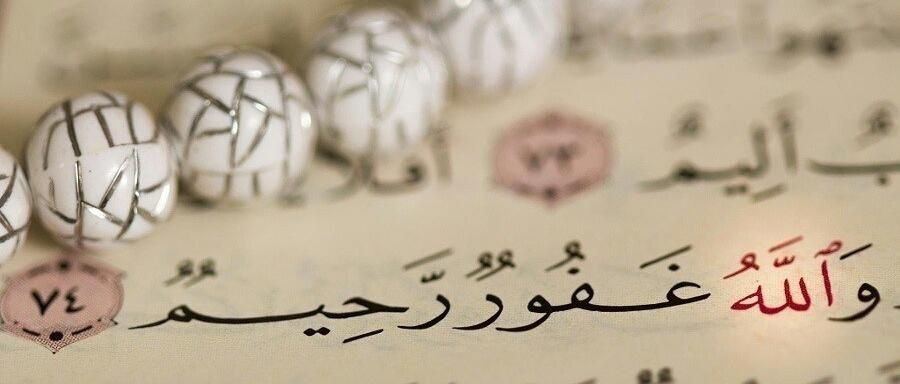 أَلِيمٌ ٧٣
وَٱللَّهُ غَفُورٌ رَّحِيمٌ ٧٤